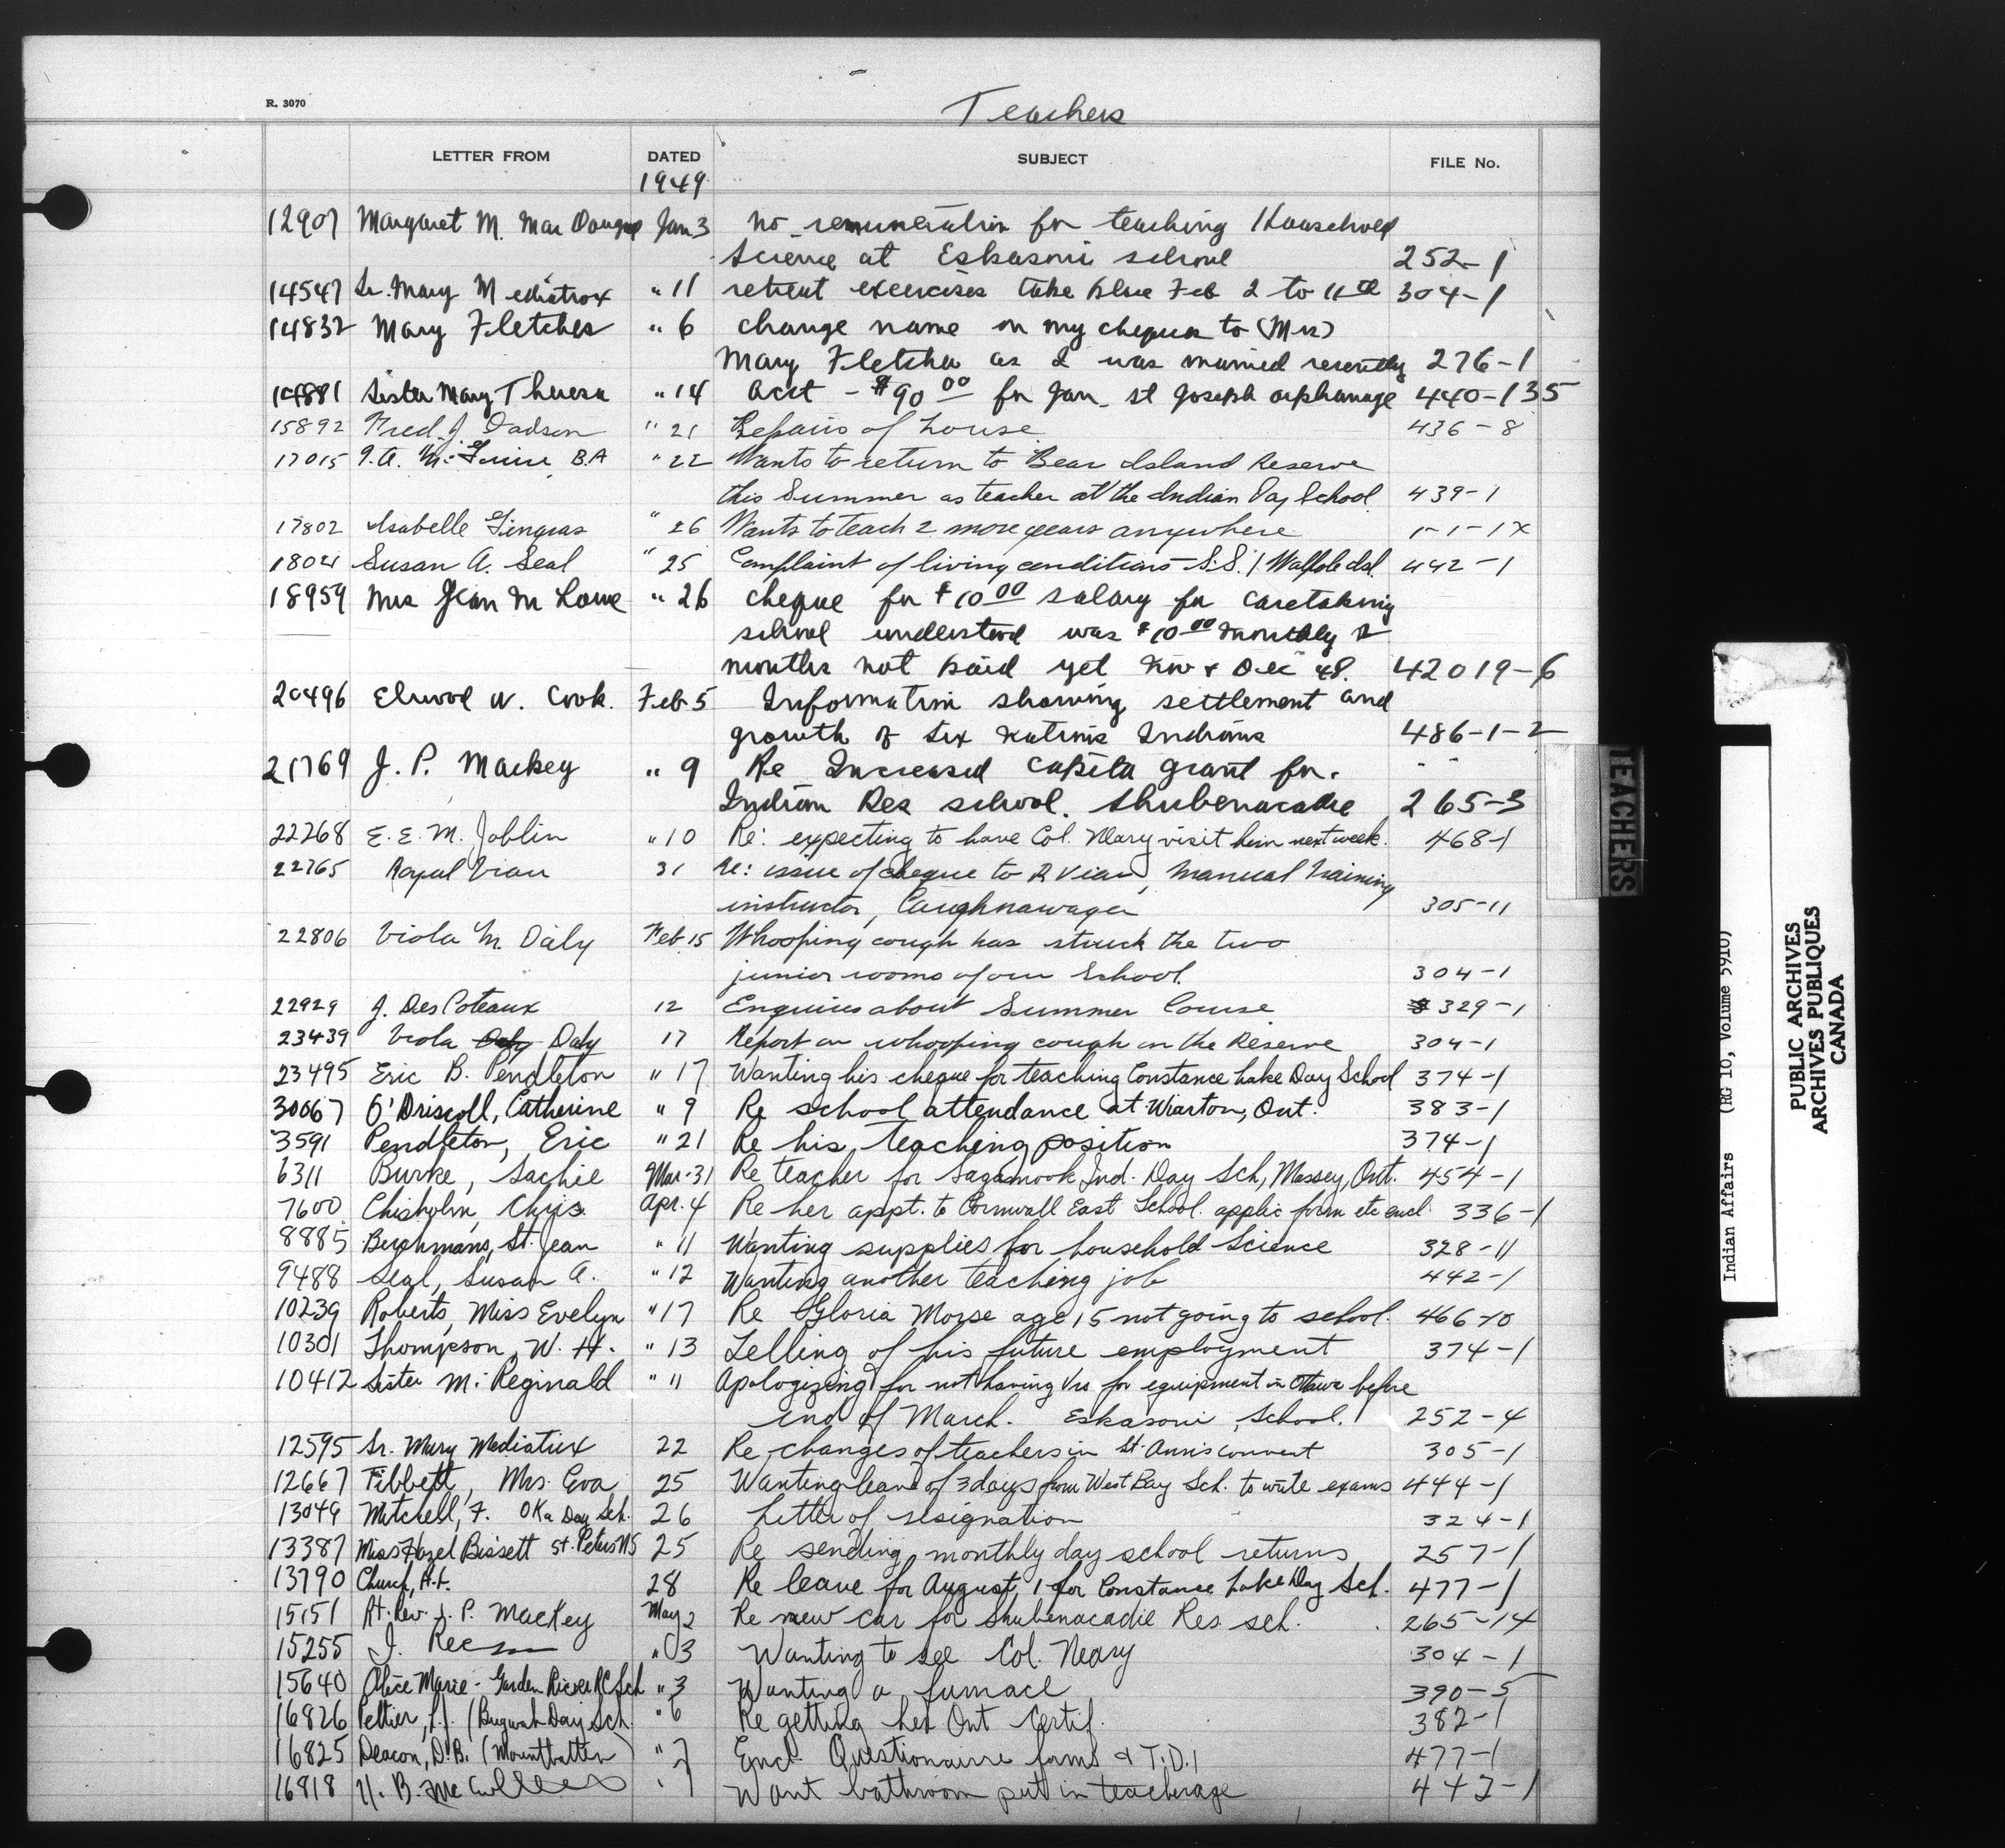 R. 3070
Teachers
LETTER FROM DATED SUBJECT FILE No.
1949
12907 Margaret M. Mac Dougal Jan 3 no remuneration for teaching Household
Science at Eskasoni school 252-1
14547 Sr. Mary Mediatrix " 11 retreat exercises take place Feb 2 to 11th 304-1
14832 Mary Fletcher " 6 change name on my cheques to (Mrs)
Mary Fletcher as I was married recently 276-1
14881 Sister Mary Theresa " 14 acct - $90 00 for Jan. St Joseph orphanage 440-135
15892 Fred. J. Dadson " 21 Repairs of house 436-8
17015 B.A " 22 Wants to return to Bear Island Reserve
this Summer as teacher at the Indian Day School 439-1
17802 Isabelle Gingras " 26 Wants to teach 2 more years anywhere 1-1-1X
18021 Susan A. Seal " 25 Complaint of living conditions - S.S. 1 Walpole Isl. 442-1
18959 Mrs Jean M Lowe " 26 cheque for $10 00 salary for caretaking
school understood was $10 00 monthly 2
months not paid yet Nov & Dec 48. 42019-6
20496 Elwood W. Cook. Feb 5 Information showing settlement and
growth of Six Nations Indians 486-1-2
21769 J. P. Mackey " 9 Re Increased capita grant for.
Indian Res school. Shubenacadie 265-3
22268 E. E. M. Joblin " 10 Re: expecting to have Col. Neary visit him next week. 468-1
22765 Royal Viau 31 re: issue of cheque to R Viau, Manual Training
instructor, Caughnawaga 305-11
22806 Viola M. Daly Feb. 15 Whooping cough has struck the two
junior rooms of our School. 304-1
22929 J. DesCoteaux 12 Enquires about Summer Course 329-1
23439 Viola Daly 17 Report on whooping cough on the Reserve 304-1
23495 Eric B. Pendleton " 17 Wanting his cheque for teaching Constance Lake Day School 374-1
30067 O'Driscoll, Catherine " 9 Re school attendance at Wiarton, Ont. 383-1
3591 Pendleton, Eric " 21 Re his teaching position 374-1
6311 Burke, Sachie Mar. 31 Re teacher for Sagamook Ind. Day Sch, Massey, Ont. 454-1
7600 Chisholm, Chris. Apr. 4 Re her appt. to Cornwall East School. applic form etc encl 336-1
8885 Berchmans, St. Jean " 11 Wanting supplies for household Science 328-11
9488 Seal, Susan A. " 12 Wanting another teaching job 442-1
10239 Roberts, Miss Evelyn " 17 Re Gloria Morse age 15 not going to school. 466-10
10301 Thompson, W. H. " 13 Telling of his future employment 374-1
10412 Sister M. Reginald " 11 Apologizing for not having Vrs for equipment in Ottawa before
end of March. Eskasoni School. 252-4
12595 Sr. Mary Mediatrix 22 Re changes of teachers in St. Ann's convent 305-1
12667 Tibbett, Mrs. Eva 25 Wanting leave of 3 days from West Bay Sch. to write exams 444-1
13049 Mitchell, F. Oka Day Sch. 26 Letter of resignation 324-1
13387 Miss Hazel Bissett St. Peters NS 25 Re sending monthly day school returns 257-1
13790 Church, H.F. 28 Re leave for August 1 for Constance Lake Day Sch. 477-1
15151 Rt. Rev. J. P. Mackey May 2 Re new car for Shubenacadie Res. sch. 265-14
15255 J. " 3 Wanting to see Col. Neary 304-1
15640 Alice Marie - Garden River RC Sch " 3 Wanting a furnace 390-5
16826 Peltier, (Buzwah Day Sch. " 6 Re getting her Ont Certif. 382-1
16825 Deacon, D.B. (Mountbatten) " 7 Encl. Questionaire forms & T.D.1 477-1
16818 H. B. " 7 Want bathroom put in teacherage 442-1
TEACHERS
Indian Affairs (RG 10, Volume 5910)
PUBLIC ARCHIVES
ARCHIVES PUBLIQUES
CANADA